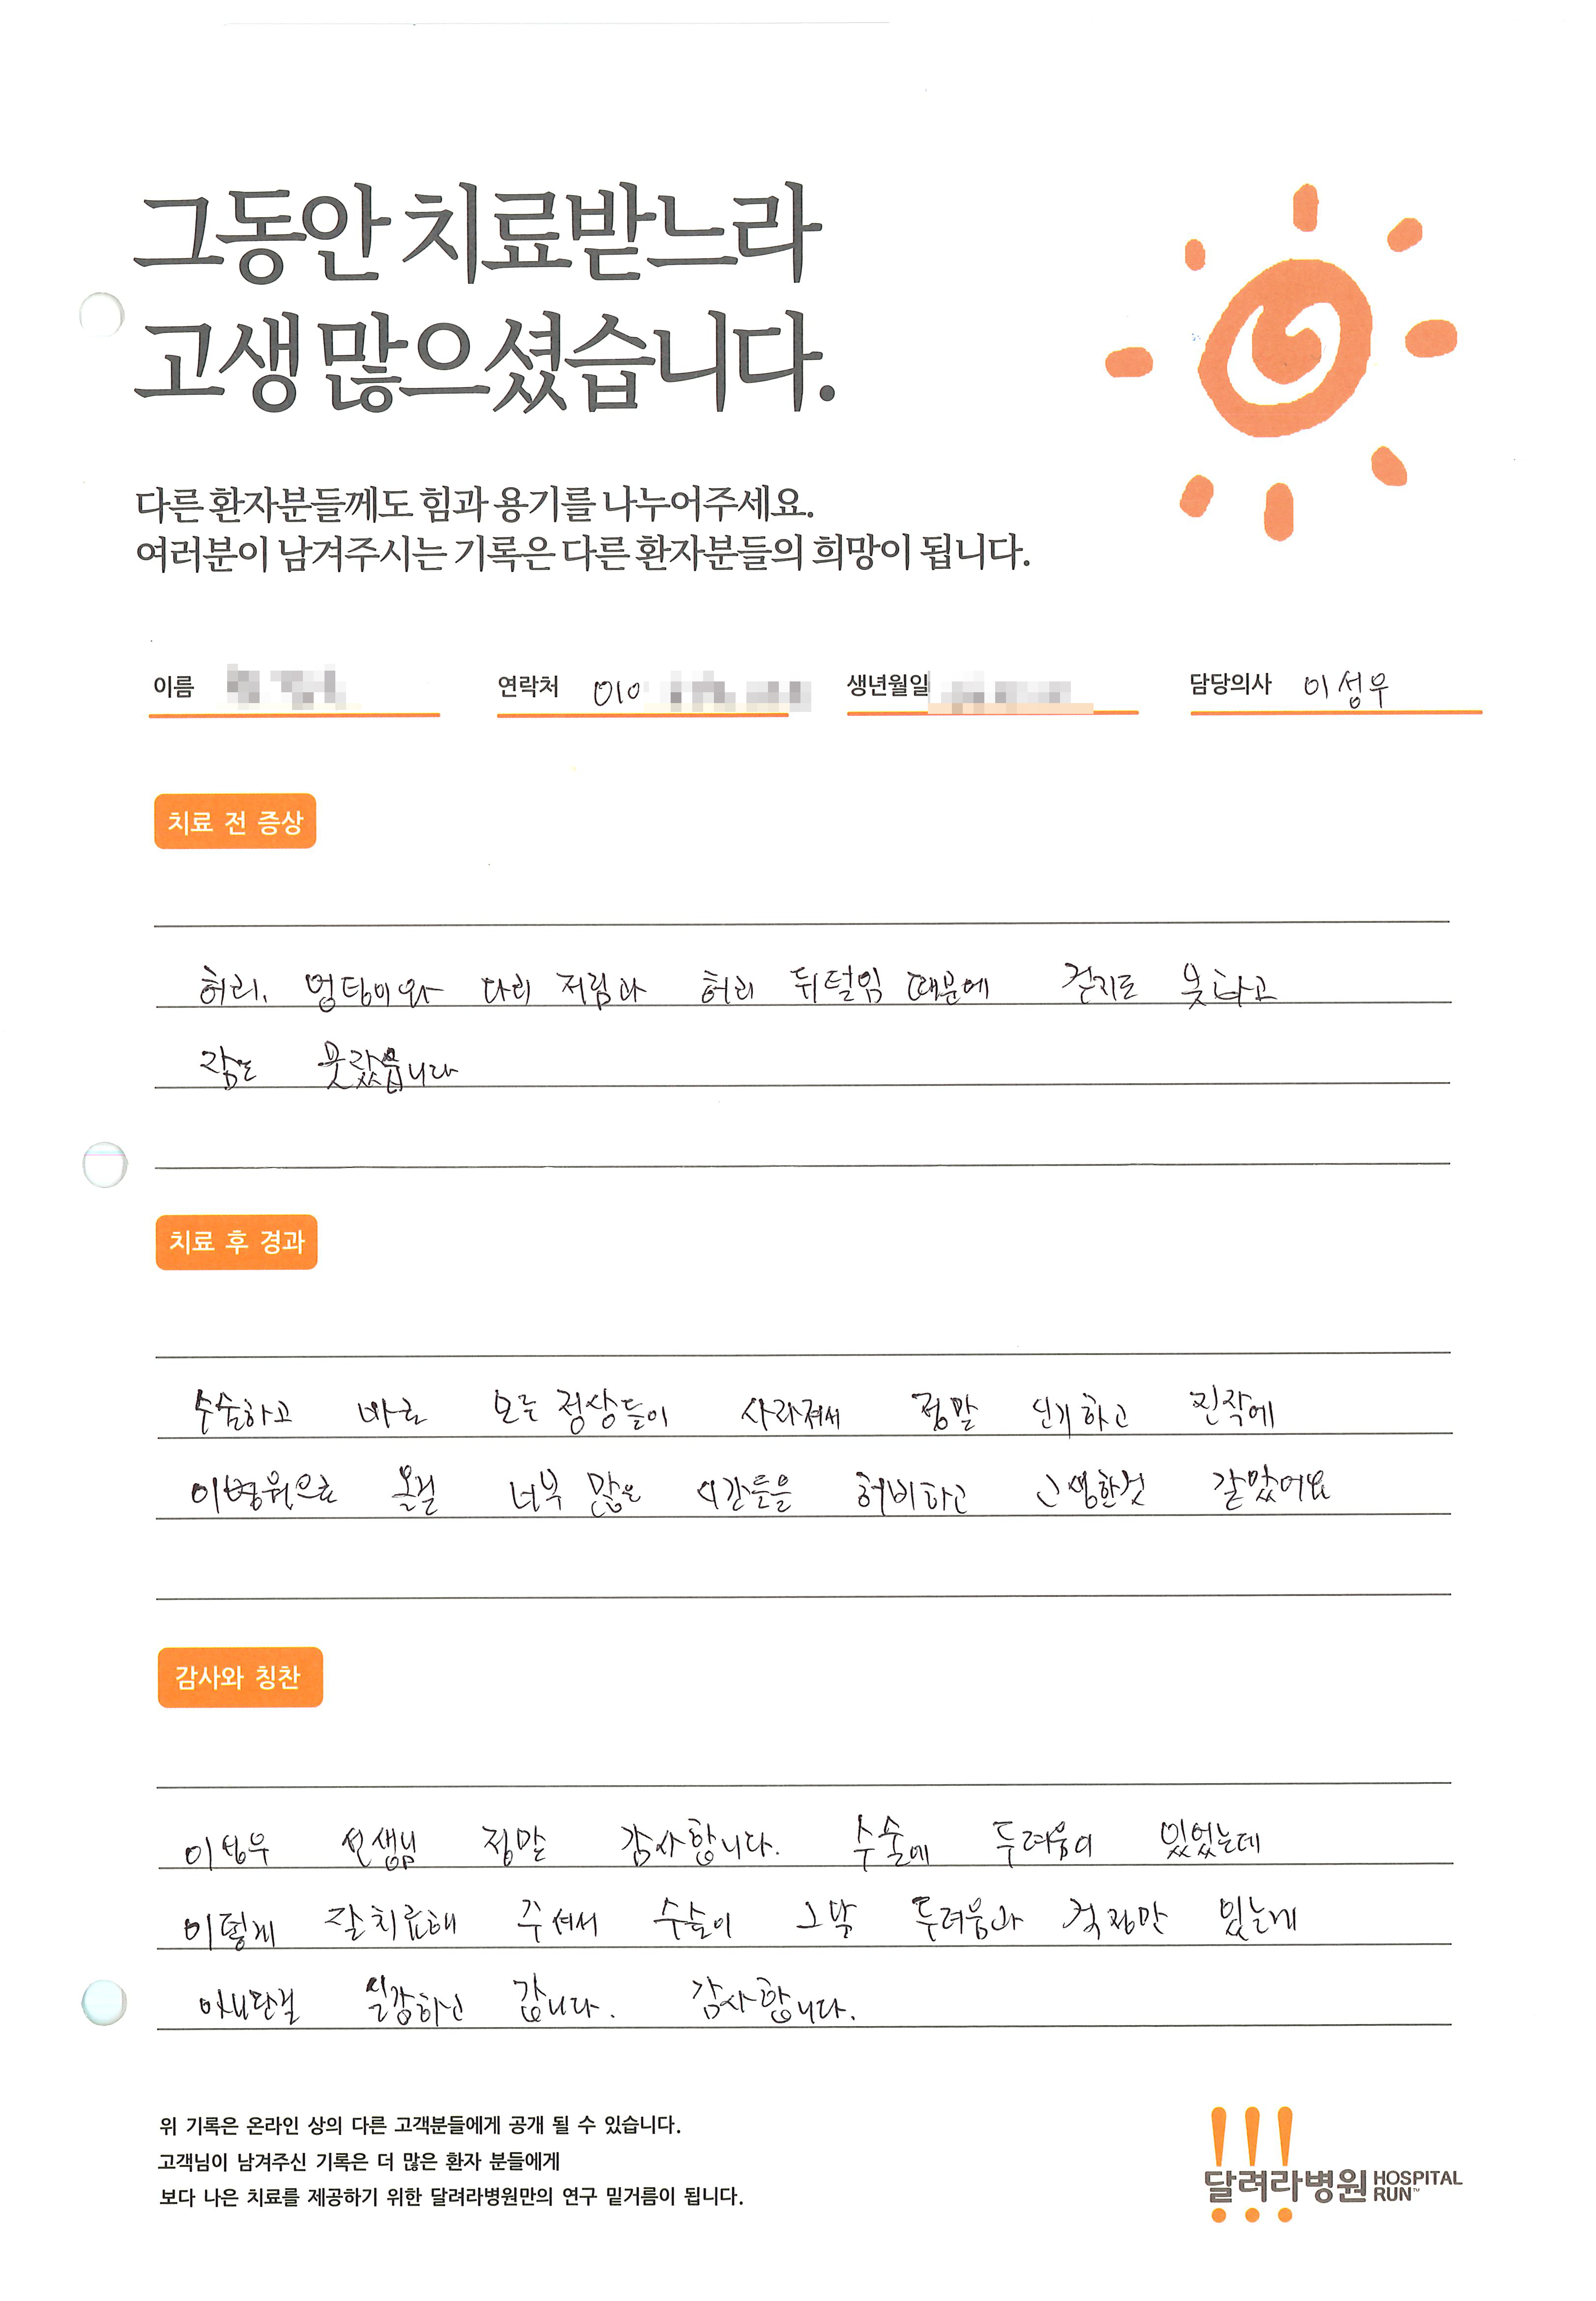 그동안 치료받느라
고생 많으셨습니다.
다른 환자분들께도 힘과 용기를 나누어주세요.
여러분이 남겨주시는 기록은 다른 환자분들의 희망이 됩니다.
이름 연락처 010 생년월일 담당의사 이성우
치료 전 증상
허리. 엉덩이와 다리 저림과 허리 뒤털임 때문에 걷지도 못하고
잠도 못잤습니다
치료 후 경과
수술하고 바로 모든 정상들이 사라져서 정말 신기하고 진작에
이병원으로 올걸 너무 많은 시간들을 허비하고 고생한것 같았어요
감사와 칭찬
이성우 선생님 정말 감사합니다. 수술에 두려움이 있었는데
이렇게 잘치료해 주셔서 수술이 그닥 두려움과 걱정만 있는게
아니란걸 실감하고 갑니다. 감사합니다.
위 기록은 온라인 상의 다른 고객분들에게 공개 될 수 있습니다.
고객님이 남겨주신 기록은 더 많은 환자 분들에게
보다 나은 치료를 제공하기 위한 달려라병원만의 연구 밑거름이 됩니다.
달려라병원 HOSPITAL RUN™